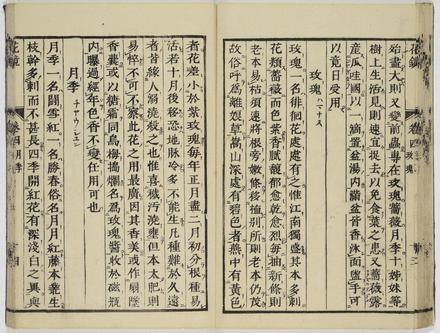 花鏡 卷四 玫瑰
始盡大則又變前蟲專在玫瑰薔薇月季十姊妹等
樹上生活見則速宜捉去以免食葉之患又薔薇露
産瓜哇國以一滴置盆湯内滿盆皆香沐面盥手可
以竟日受用
玫瑰 ハマナス
玫瑰一名徘徊花處處有之惟江南獨盛其本多刺
花類薔薇而色紫香膩馥郁愈乾愈烈毎抽新條則
老本易枯須速將根傍嫩條移植別所則老本仍茂
故俗呼爲離娘草嵩山深處有碧色者燕中有黄色
者花差小於紫玫瑰毎年正月盡二月初分根種易
活若十月後移恐地脉冷多不能生凡種難於久遠
者皆縁人溺澆殺之也惟喜穢汚澆壅但本太肥則
易悴不可不察此花之用最廣因其香美或作扇墜
香囊或以糖霜同烏梅搗爛名爲玫瑰醬收於磁瓶
内曝過經年色香不變任用可也
月季 チヤウシユン
月季一名鬪雪紅一名勝春俗名月月紅藤本叢生
枝幹多刺而不甚長四季開紅花有深淺白之異與
花鏡 卷四 月季